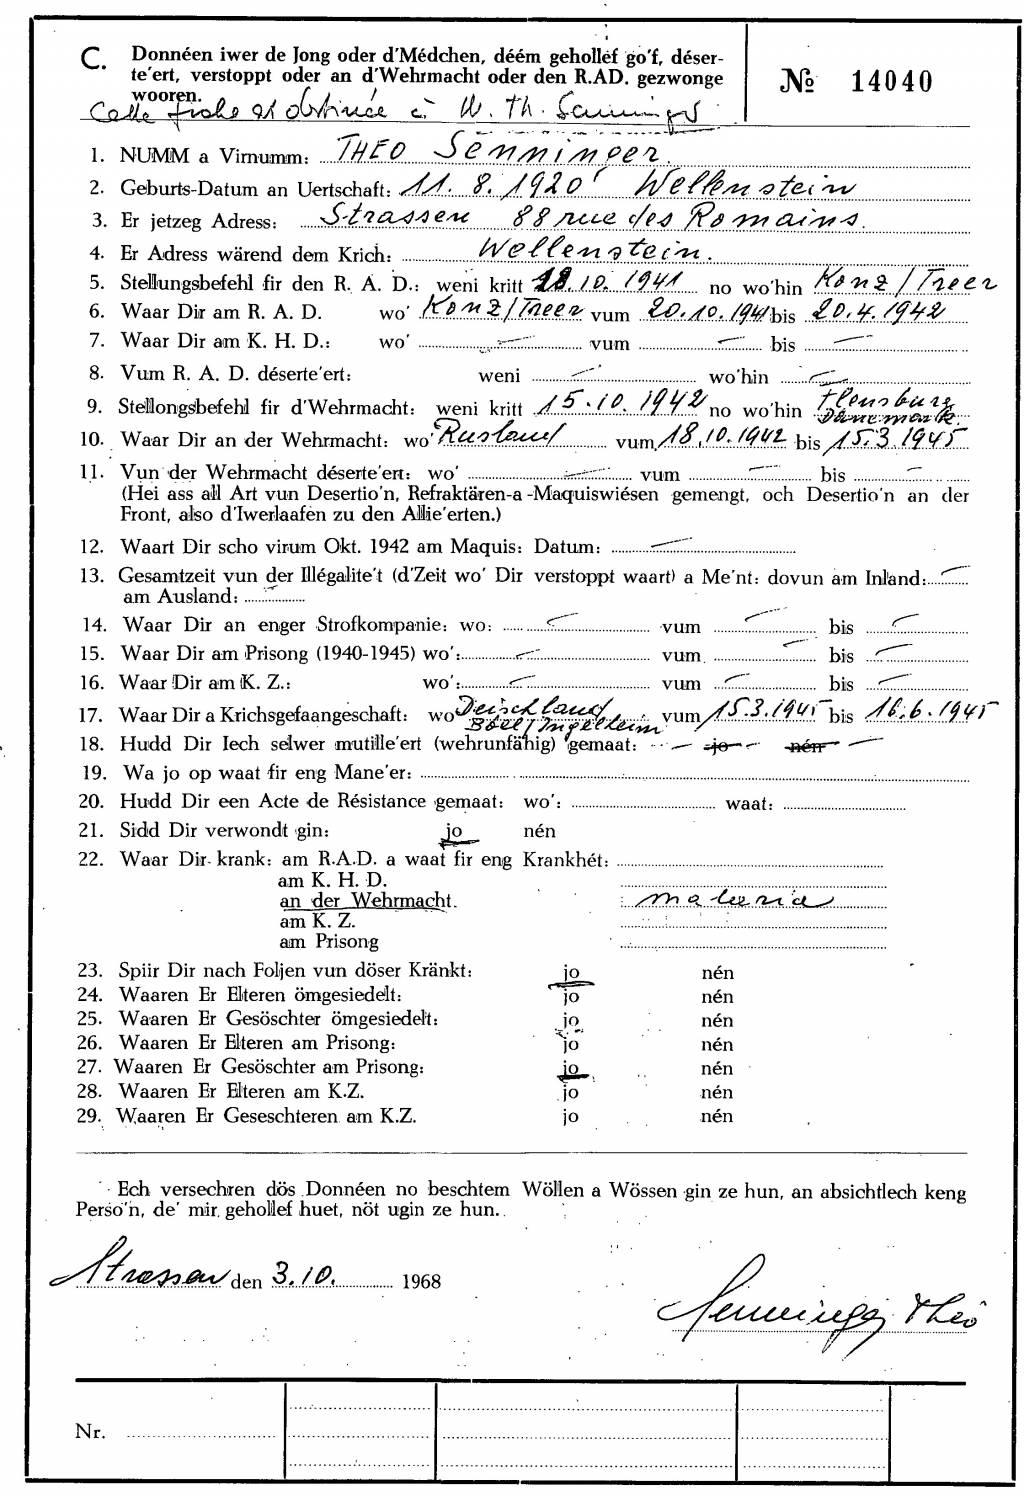 C. Donnéen iwer de Jong oder d'Médchen, déém gehollef go'f, déser-
te'ert, verstoppt oder an d'Wehrmacht oder den R.AD. gezwonge
wooren.
№ 14040
Cette fiche est destinée à M. Th. Senninger
1. NUMM a Virnumm: THEO Senninger.
2. Geburts-Datum an Uertschaft: 11. 8. 1920 Wellenstein
3. Er jetzeg Adress: Strassen 88 rue des Romains.
4. Er Adress wärend dem Krich: Wellenstein.
5. Stellungsbefehl fir den R. A. D.: weni kritt 18.10.1941 no wo'hin Konz/Treer
6. Waar Dir am R. A. D. wo' Konz/Treer vum 20.10.1941 bis 20.4.1942
7. Waar Dir am K. H. D.: wo' — vum — bis —
8. Vum R. A. D. déserte'ert: weni — wo'hin —
9. Stellongsbefehl fir d'Wehrmacht: weni kritt 15.10.1942 no wo'hin Flensburg
Dänemark
10. Waar Dir an der Wehrmacht: wo' Rusland vum 18.10.1942 bis 15.3.1945
11. Vun der Wehrmacht déserte'ert: wo' — vum — bis —
(Hei ass all Art vun Desertio'n, Refraktären-a-Maquiswiésen gemengt, och Desertio'n an der
Front, also d'Iwerlaafen zu den Allie'erten.)
12. Waart Dir scho virum Okt. 1942 am Maquis: Datum: —
13. Gesamtzeit vun der Illégalite't (d'Zeit wo' Dir verstoppt waart) a Me'nt: dovun am Inland: —
am Ausland: —
14. Waar Dir an enger Strofkompanie: wo: — vum — bis —
15. Waar Dir am Prisong (1940-1945) wo': — vum — bis —
16. Waar Dir am K. Z.: wo': — vum — bis —
17. Waar Dir a Krichsgefaangeschaft: wo Deischland vum 15.3.1945 bis 16.6.1945
Böel/Ingelheim
18. Hudd Dir Iech selwer mutille'ert (wehrunfähig) gemaat: — jo — nén —
19. Wa jo op waat fir eng Mane'er:
20. Hudd Dir een Acte de Résistance gemaat: wo': waat:
21. Sidd Dir verwondt gin: jo nén
22. Waar Dir krank: am R.A.D. a waat fir eng Krankhét:
am K. H. D.
an der Wehrmacht. malaria
am K. Z.
am Prisong
23. Spiir Dir nach Foljen vun döser Kränkt: jo nén
24. Waaren Er Elteren ömgesiedelt: jo nén
25. Waaren Er Gesöschter ömgesiedelt: jo nén
26. Waaren Er Elteren am Prisong: jo nén
27. Waaren Er Gesöschter am Prisong: jo nén
28. Waaren Er Elteren am K.Z. jo nén
29. Waaren Er Geseschteren am K.Z. jo nén
Ech versechren dös Donnéen no beschtem Wöllen a Wössen gin ze hun, an absichtlech keng
Perso'n, de' mir gehollef huet, nöt ugin ze hun.
Strassen den 3.10. 1968
Senninger Théo
Nr.